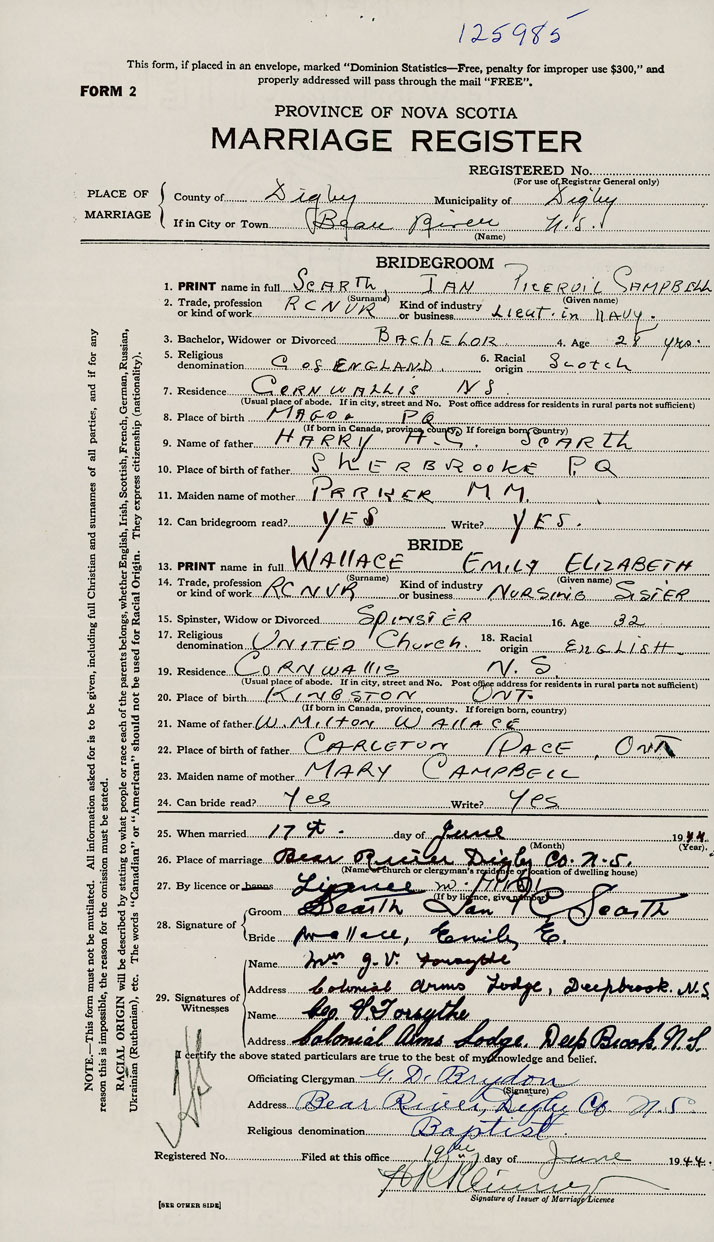 125985
This form, if placed in an envelope, marked "Dominion Statistics—Free, penalty for improper use $300," and
properly addressed will pass through the mail "FREE".
FORM 2
PROVINCE OF NOVA SCOTIA
MARRIAGE REGISTER
REGISTERED No.
(For use of Registrar General only)
PLACE OF MARRIAGE
County of Digby Municipality of Digby
If in City or Town Bear River N.S.
(Name)
BRIDEGROOM
1. PRINT name in full SCARTH, IAN CAMPBELL
(Surname) (Given name)
2. Trade, profession or kind of work RCNVR Kind of industry or business Lieut. in NAVY.
3. Bachelor, Widower or Divorced BACHELOR 4. Age 28 yrs.
5. Religious denomination C of ENGLAND. 6. Racial origin Scotch
7. Residence CORNWALLIS NS.
(Usual place of abode. If in city, street and No. Post office address for residents in rural parts not sufficient)
8. Place of birth MAGOG PQ
(If born in Canada, province, county. If foreign born, country)
9. Name of father HARRY A.C. SCARTH
10. Place of birth of father SHERBROOKE P.Q
11. Maiden name of mother PARKER M M.
12. Can bridegroom read? YES Write? YES.
BRIDE
13. PRINT name in full WALLACE EMILY ELIZABETH
(Surname) (Given name)
14. Trade, profession or kind of work RCNVR Kind of industry or business NURSING SISTER
15. Spinster, Widow or Divorced SPINSTER 16. Age 32
17. Religious denomination UNITED Church. 18. Racial origin ENGLISH.
19. Residence CORNWALLIS N.S.
(Usual place of abode. If in city, street and No. Post office address for residents in rural parts not sufficient)
20. Place of birth KINGSTON ONT.
(If born in Canada, province, county. If foreign born, country)
21. Name of father W. MILTON WALLACE
22. Place of birth of father CARLETON PLACE, ONT
23. Maiden name of mother MARY CAMPBELL
24. Can bride read? Yes Write? Yes
25. When married 17th. day of June 1944
(Month) (Year).
26. Place of marriage Bear River Digby Co. N.S.
(Name of church or clergyman's residence or location of dwelling house)
27. By licence or banns Licence no.
(If by licence, give number)
28. Signature of
Groom Scarth Ian P C Scarth
Bride Wallace, Emily E.
29. Signatures of Witnesses
Name Mrs G.V. Forsythe
Address Colonial Arms Lodge, Deepbrook. N.S
Name Geo. V. Forsythe
Address Colonial Arms Lodge. Deep Brook. N.S.
I certify the above stated particulars are true to the best of my knowledge and belief.
Officiating Clergyman G. D. Brydon
(Signature)
Address Bear River, Digby Co. N.S.
Religious denomination Baptist.
Registered No. Filed at this office 19th day of June 1944.
Signature of Issuer of Marriage Licence
[SEE OTHER SIDE]
NOTE.—This form must not be mutilated. All information asked for is to be given, including full Christian and surnames of all parties, and if for any
reason this is impossible, the reason for the omission must be stated.
RACIAL ORIGIN will be described by stating to what people or race each of the parents belongs, whether English, Irish, Scottish, French, German, Russian,
Ukrainian (Ruthenian), etc. The words "Canadian" or "American" should not be used for Racial Origin. They express citizenship (nationality).